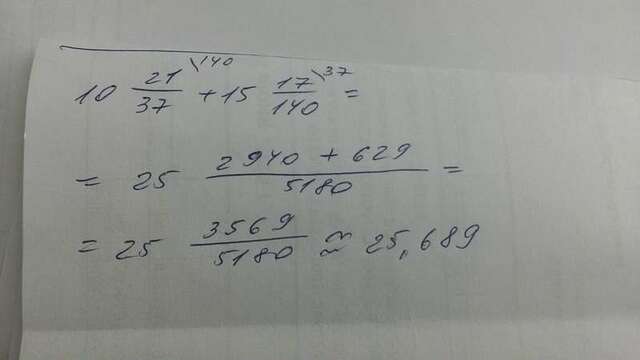 10 21/37 \140 + 15 17/140 \37 =
= 25 2940 + 629/5180 =
= 25 3569/5180 ≈ 25,689